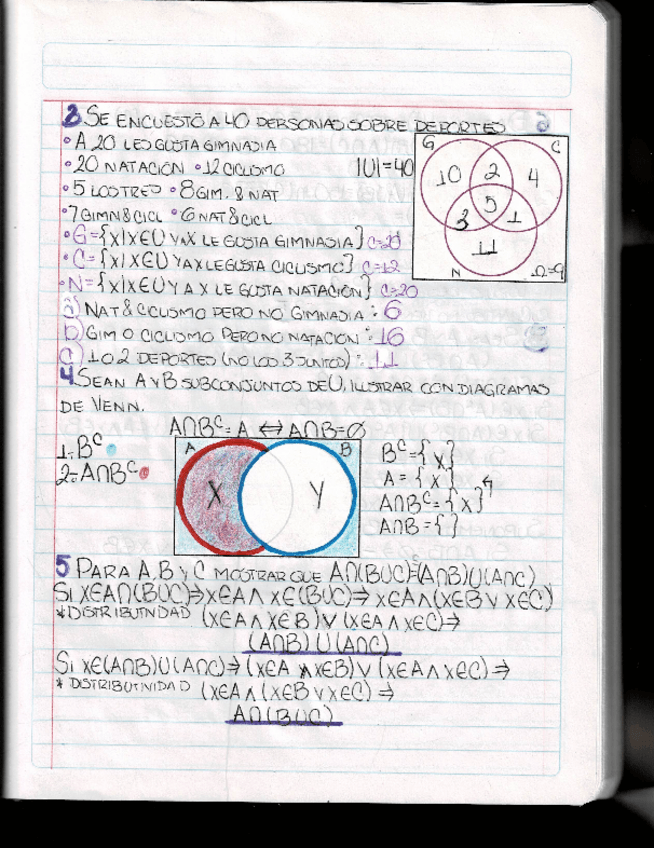 3. SE ENCUESTÓ A 40 PERSONAS SOBRE DEPORTES
• A 20 LES GUSTA GIMNASIA
• 20 NATACIÓN • 12 CICLISMO |U|=40
• 5 LOS TRES • 8 GIM. & NAT
• 7 GIMN & CICL • 6 NAT & CICL
G C
10 2 4
5
3 1
11
N Ω=9
• G={X|X∈U Y A X LE GUSTA GIMNASIA} C=20
• C={X|X∈U Y A X LE GUSTA CICLISMO} C=12
• N={X|X∈U Y A X LE GUSTA NATACIÓN} C=20
a) NAT & CICLISMO PERO NO GIMNASIA: 6
b) GIM O CICLISMO PERO NO NATACIÓN: 16
c) 1 O 2 DEPORTES (NO LOS 3 JUNTOS): 11
4. SEAN A Y B SUBCONJUNTOS DE U, ILUSTRAR CON DIAGRAMAS
DE VENN.
A∩Bᶜ=A ⇔ A∩B=∅
1. Bᶜ
2. A∩Bᶜ
A B
X Y
Bᶜ={X}
A={X}
A∩Bᶜ={X}
A∩B={ }
5 PARA A,B Y C MOSTRAR QUE A∩(B∪C)=(A∩B)∪(A∩C)
SI X∈A∩(B∪C)⇒X∈A∧X∈(B∪C)⇒X∈A∧(X∈B∨X∈C)
* DISTRIBUTIVIDAD (X∈A∧X∈B)∨(X∈A∧X∈C)⇒
(A∩B)∪(A∩C)
SI X∈(A∩B)∪(A∩C)⇒(X∈A∧X∈B)∨(X∈A∧X∈C)⇒
* DISTRIBUTIVIDAD (X∈A∧(X∈B∨X∈C)⇒
A∩(B∪C)